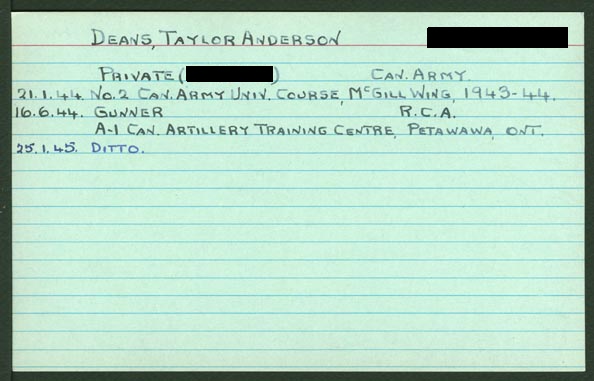 DEANS, TAYLOR ANDERSON
PRIVATE ( ) CAN. ARMY.
21.1.44. No.2 CAN. ARMY UNIV. COURSE, McGILL WING, 1943-44.
16.6.44. GUNNER R.C.A.
A-1 CAN. ARTILLERY TRAINING CENTRE, PETAWAWA, ONT.
25.1.45. DITTO.